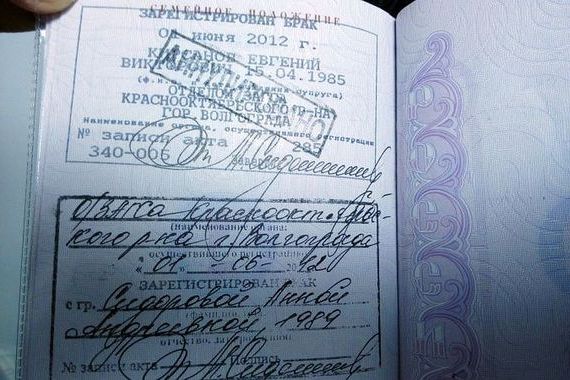 СЕМЕЙНОЕ ПОЛОЖЕНИЕ
ЗАРЕГИСТРИРОВАН БРАК
01 июня 2012 г.
ЕВГЕНИЙ
15.04.1985
ОТДЕЛОМ
КРАСНООКТЯБРЬСКОГО Р-НА
ГОР. ВОЛГОГРАДА
Наименование органа, осуществившего регистрацию
№ записи акта 285
340-006
ОЗАГСа Краснооктябрь-
ского р-на г. Волгограда
(наименование органа,
осуществившего регистрацию)
"01" - 06 - 2012
ЗАРЕГИСТРИРОВАН БРАК
с гр. Сидоровой Анной
Андреевной, 1989
отчество, дата рождения
№ записи акта Подпись